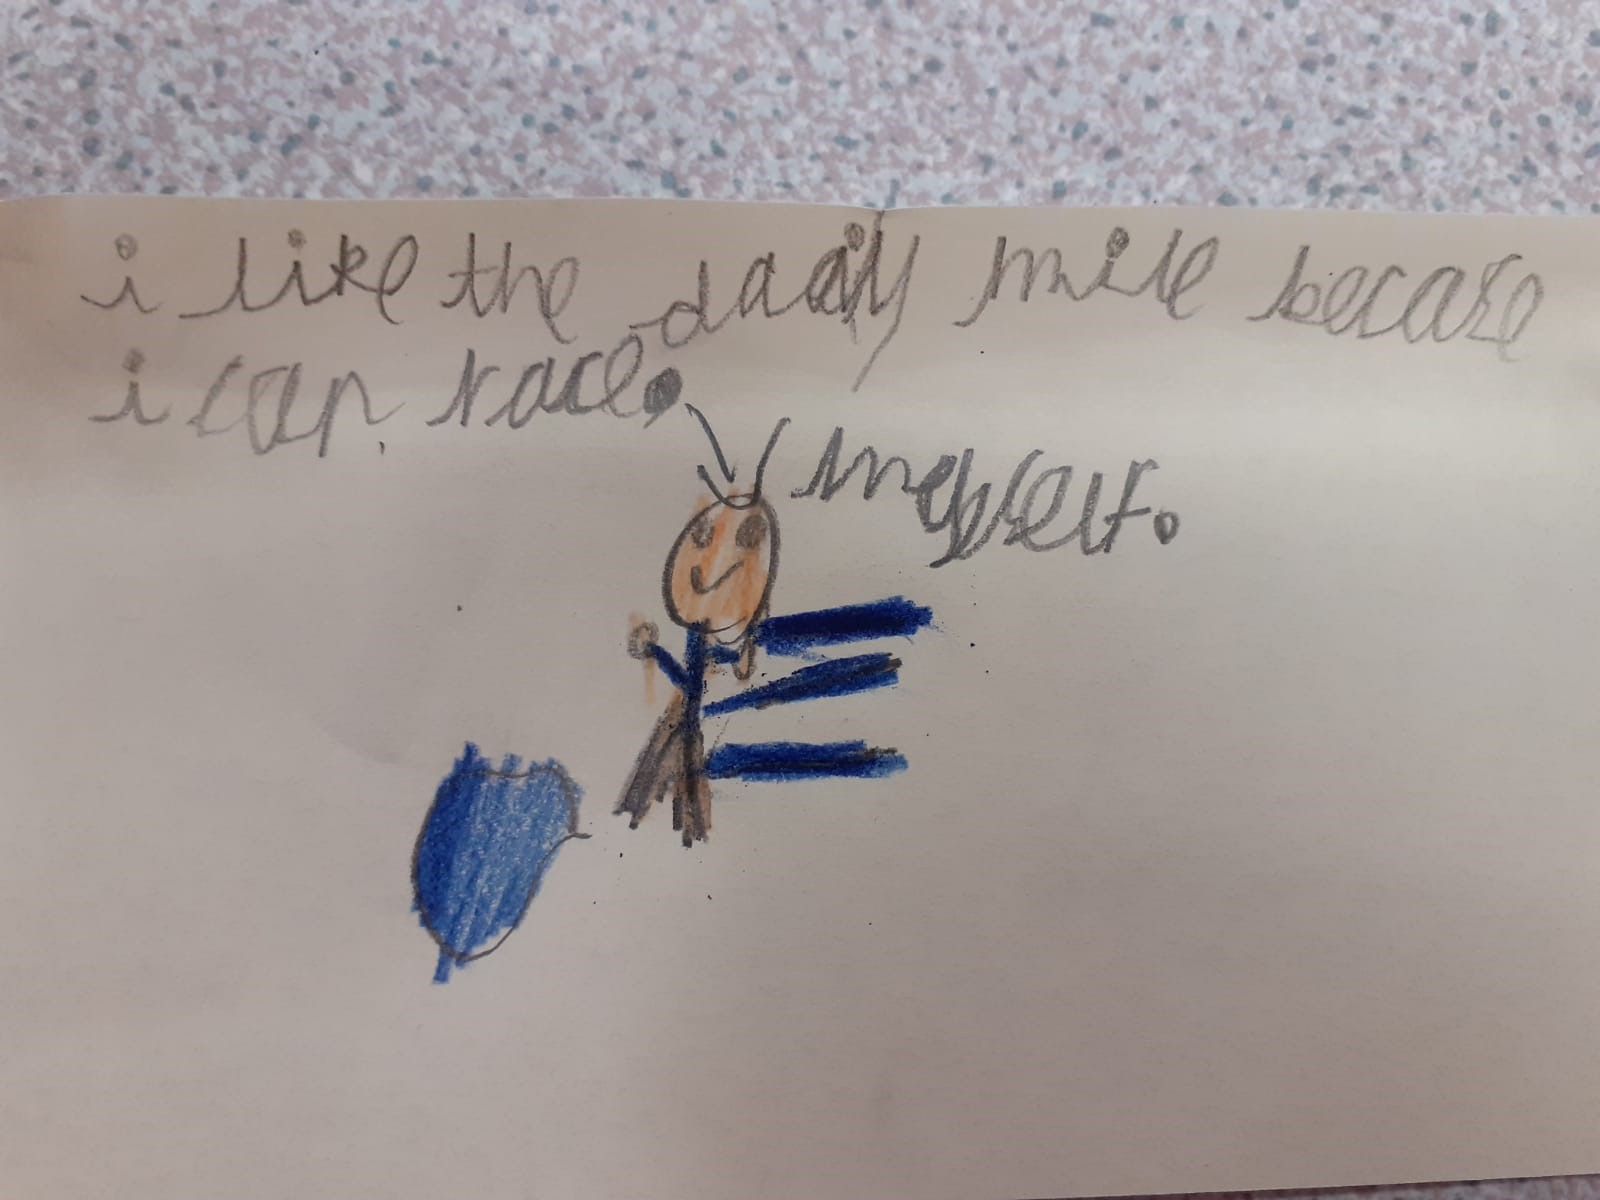 i like the daaily mile becaze
i can race.
meyself.